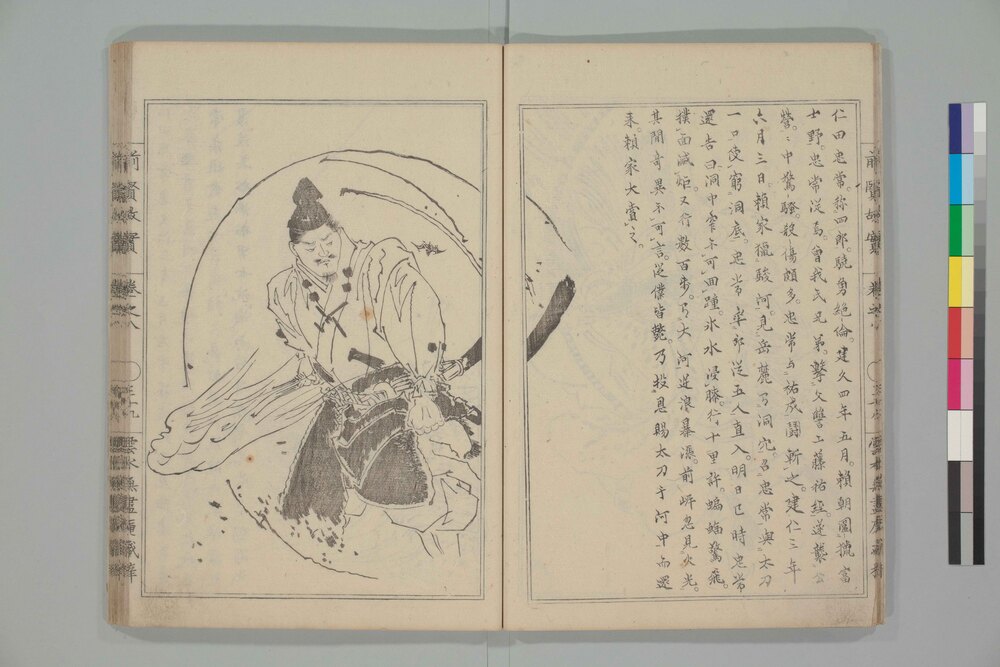 仁田忠常。称四郎。驍勇絶倫。建久四年五月。頼朝圍獵富
士野。忠常從焉。曾我氏兄弟。擊父讐工藤祐経遂襲公
營。〻中驚騒。殺傷頗多。忠常与祐成闘斬之。建仁三年
六月三日。頼家獵駿河。見岳麓有洞穴召忠常與太刀
一口使窮洞底。忠常率郎從五人直入。明日巳時忠常
還告曰。洞中窄不可回踵。氷水浸膝。行十里許。蝙蝠驚飛。
撲面滅炬。又行数百歩。有大河逆浪暴漲。前岸忽見火光。
其間奇異不可言。從僕皆斃。乃投恩賜太刀于河中而還
来。頼家大賞之。
前賢故實 巻之八
前賢故實 巻之八 雲水無盡庵藏梓